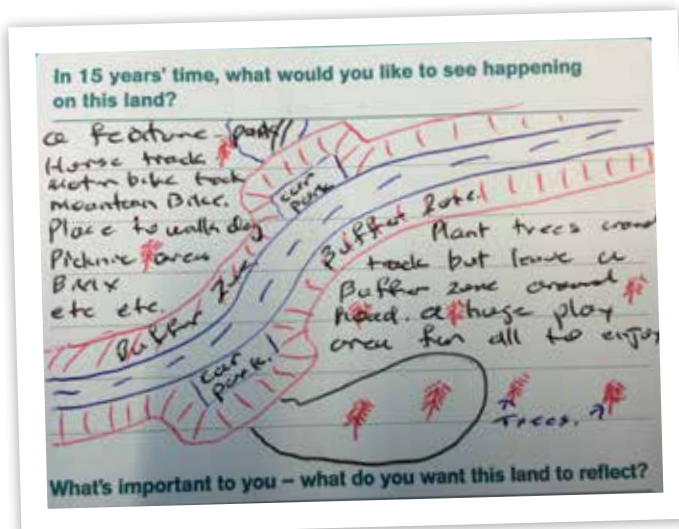 In 15 years' time, what would you like to see happening
on this land?
a feature
Horse track
motor bike track
mountain Bike.
Place to walk dog
Picknic area
BMX
etc etc.
car
park
Buffer Zone
Buffer Zone
car
park.
Plant trees around
track but leave a
Buffer zone around
road. a huge play
area for all to enjoy
Trees.
What's important to you – what do you want this land to reflect?